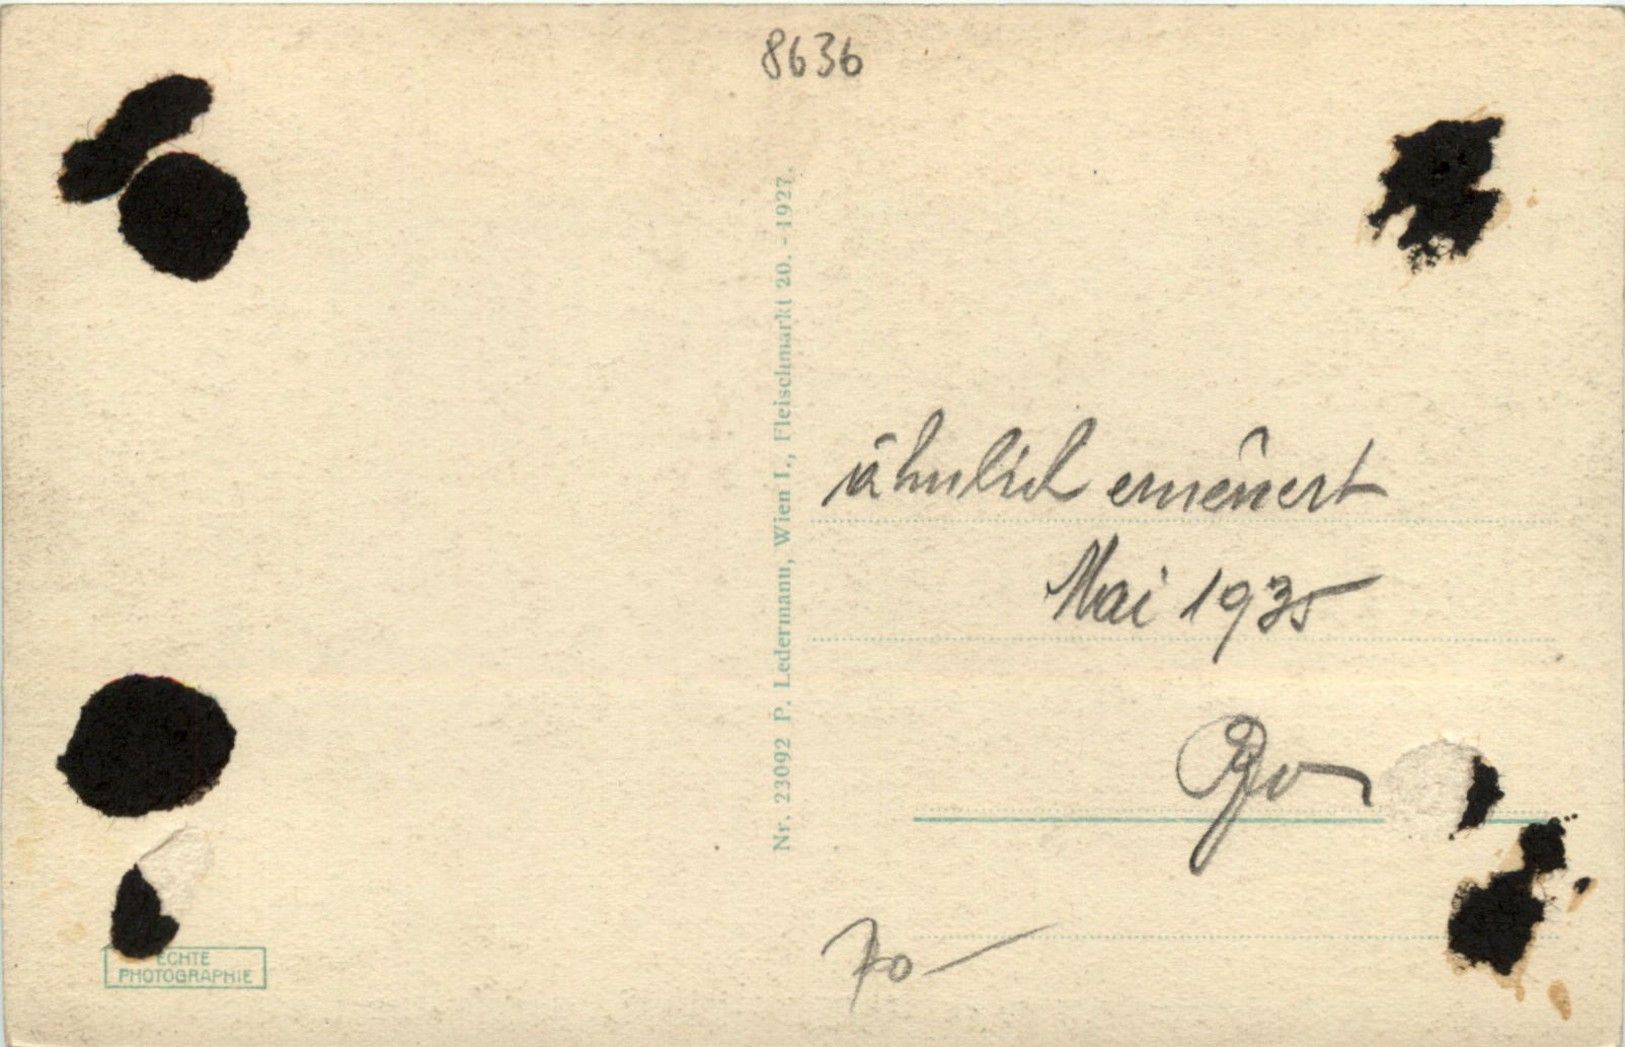 8636
Nr. 23092 P. Ledermann, Wien I., Fleischmarkt 20. - 1927.
ähnlich erneuert
Mai 1935
70
ECHTE
PHOTOGRAPHIE